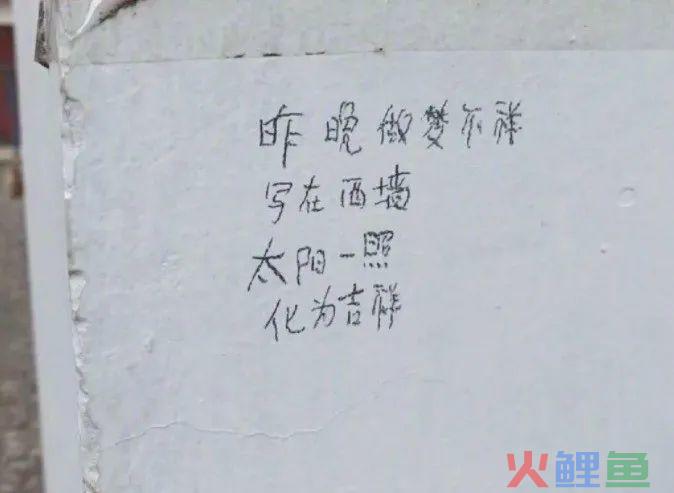 昨晚做梦不祥
写在西墙
太阳一照
化为吉祥
火鲤鱼